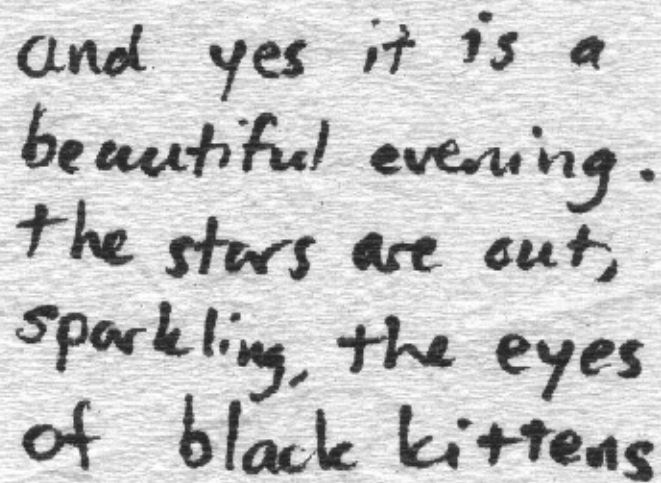 and yes it is a
beautiful evening.
the stars are out,
sparkling, the eyes
of black kittens